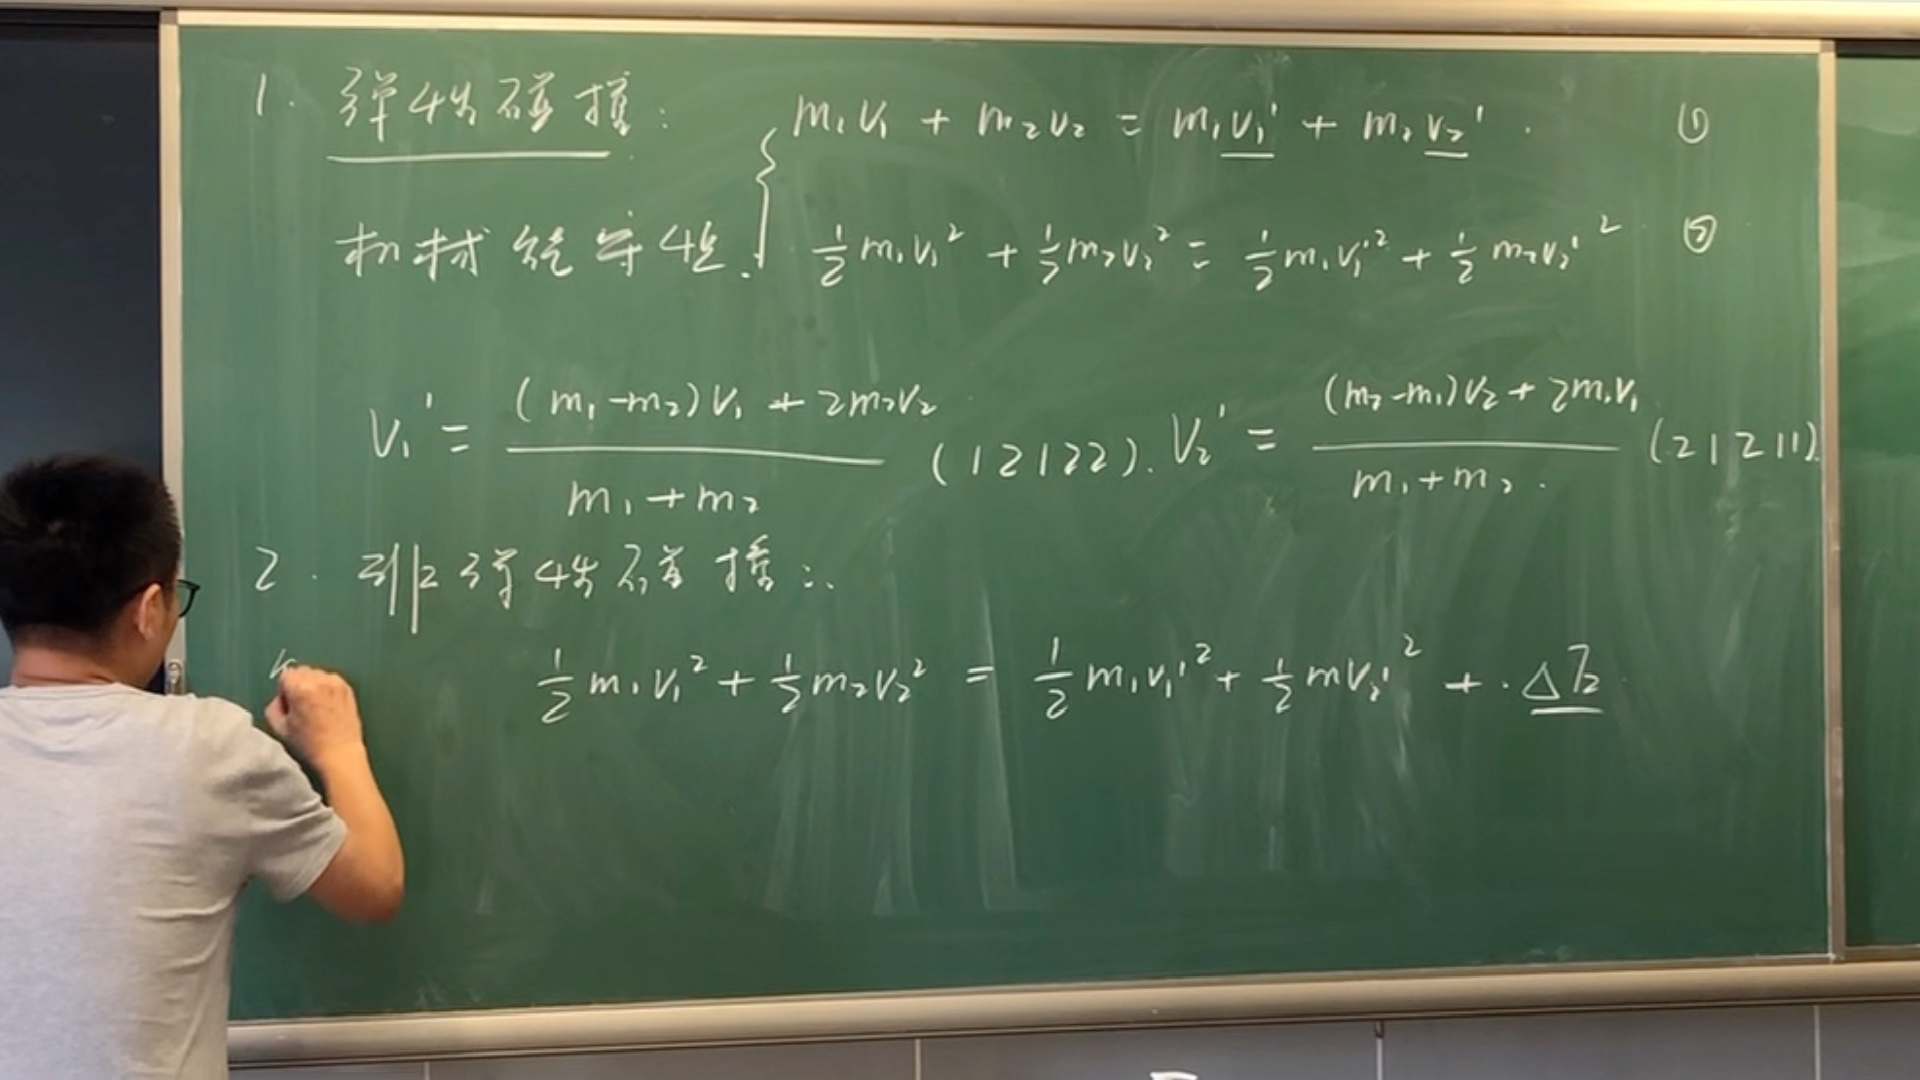 1. 弹性碰撞: m₁v₁ + m₂v₂ = m₁v₁' + m₂v₂' . ①
机械能守恒. ½m₁v₁² + ½m₂v₂² = ½m₁v₁'² + ½m₂v₂'² ②
v₁' = ((m₁-m₂)v₁ + 2m₂v₂)/(m₁+m₂) (12122). v₂' = ((m₂-m₁)v₂ + 2m₁v₁)/(m₁+m₂) (21211)
2. 非弹性碰撞:
½m₁v₁² + ½m₂v₂² = ½m₁v₁'² + ½mv₂'² +